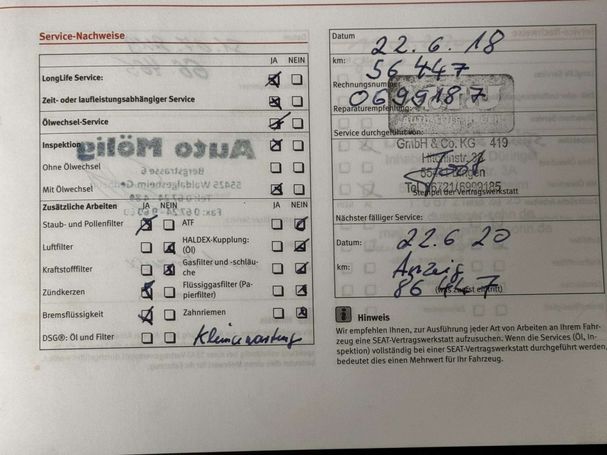 Service-Nachweise
JA NEIN
LongLife Service:
Zeit- oder laufleistungsabhängiger Service
Ölwechsel-Service
Inspektion
Ohne Ölwechsel
Mit Ölwechsel
Zusätzliche Arbeiten JA NEIN JA NEIN
Staub- und Pollenfilter ATF
Luftfilter HALDEX-Kupplung: (Öl)
Kraftstoffilter Gasfilter und -schläu-
che
Zündkerzen Flüssiggasfilter (Pa-
pierfilter)
Bremsflüssigkeit Zahnriemen
DSG®: Öl und Filter Kleinewartung
Datum 22.6.18
km: 56447
Rechnungsnummer 0699187
Reparaturempfehlung:
Service durchgeführt von:
GmbH & Co. KG 419
Tel. 06721/6999185
Stempel der Vertragswerkstatt
Nächster fälliger Service:
Datum: 22.6 20
km: Anzeig
86447
(was zuerst eintritt)
Hinweis
Wir empfehlen Ihnen, zur Ausführung jeder Art von Arbeiten an Ihrem Fahr-
zeug eine SEAT-Vertragswerkstatt aufzusuchen. Wenn die Services (Öl, In-
spektion) vollständig bei einer SEAT-Vertragswerkstatt durchgeführt werden,
bedeutet dies einen Mehrwert für Ihr Fahrzeug.
Auto Mölig
Bergstrasse 6
55425 Waldalgesheim